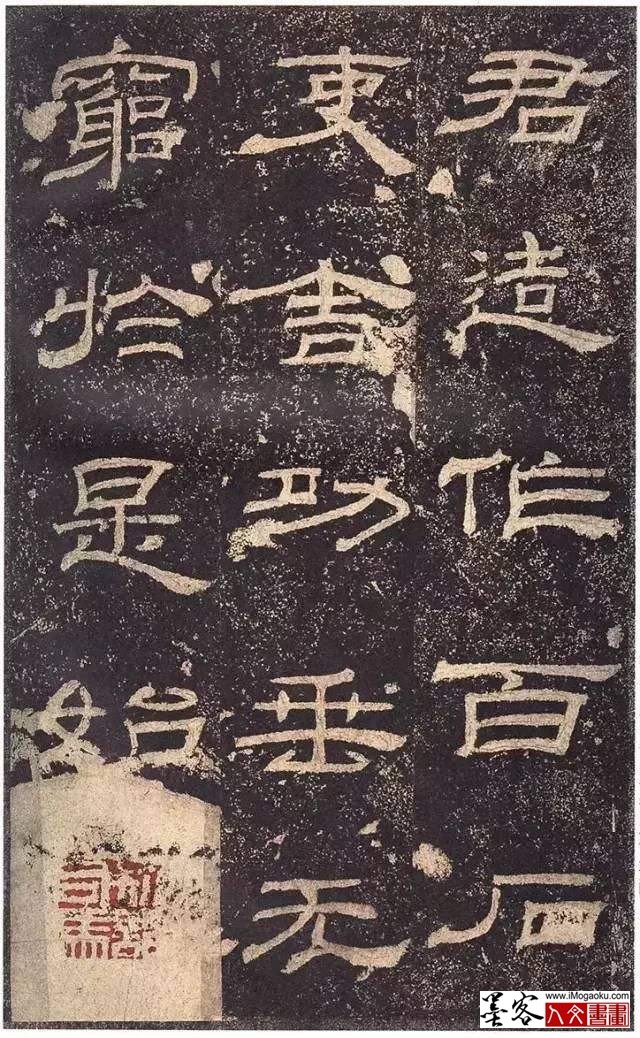 君造作百石
吏舍功垂无
窮於是始
www.iMogaoku.com
墨客人文書畫